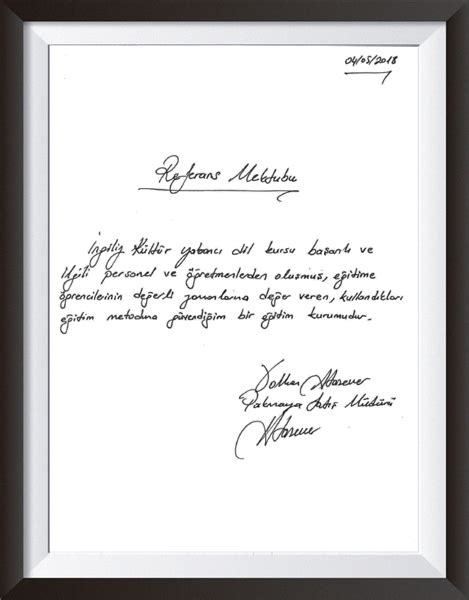 04/05/2018
Referans Mektubu
İngiliz Kültür yabancı dil kursu başarılı ve
ilgili personel ve öğretmenlerden oluşmuş, eğitime
öğrencilerinin değerli zamanlarına değer veren, kullandıkları
eğitim metoduna güvendiğim bir eğitim kurumudur.
Müdürü